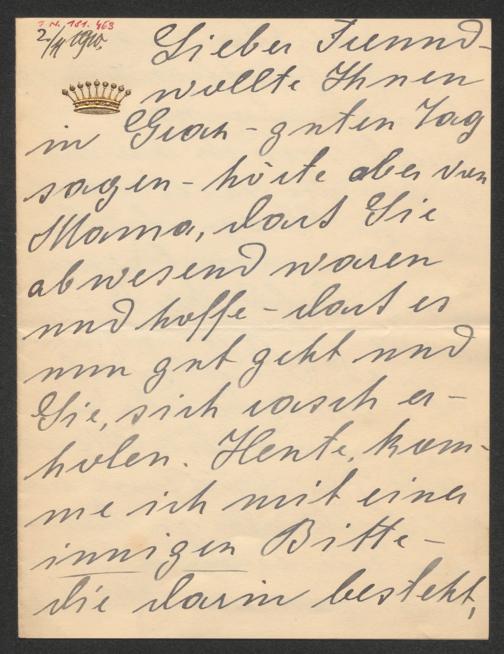 I. N. 181.463
2./11 1910.
Lieber Freund -
wollte Ihnen
in Gran - guten Tag
sagen - hörte aber von
Mama, dass Sie
abwesend waren
und hoffe - dass es
nun gut geht und
Sie, sich rasch er-
holen. Heute, kom-
me ich mit einer
innigen Bitte -
die darin besteht,